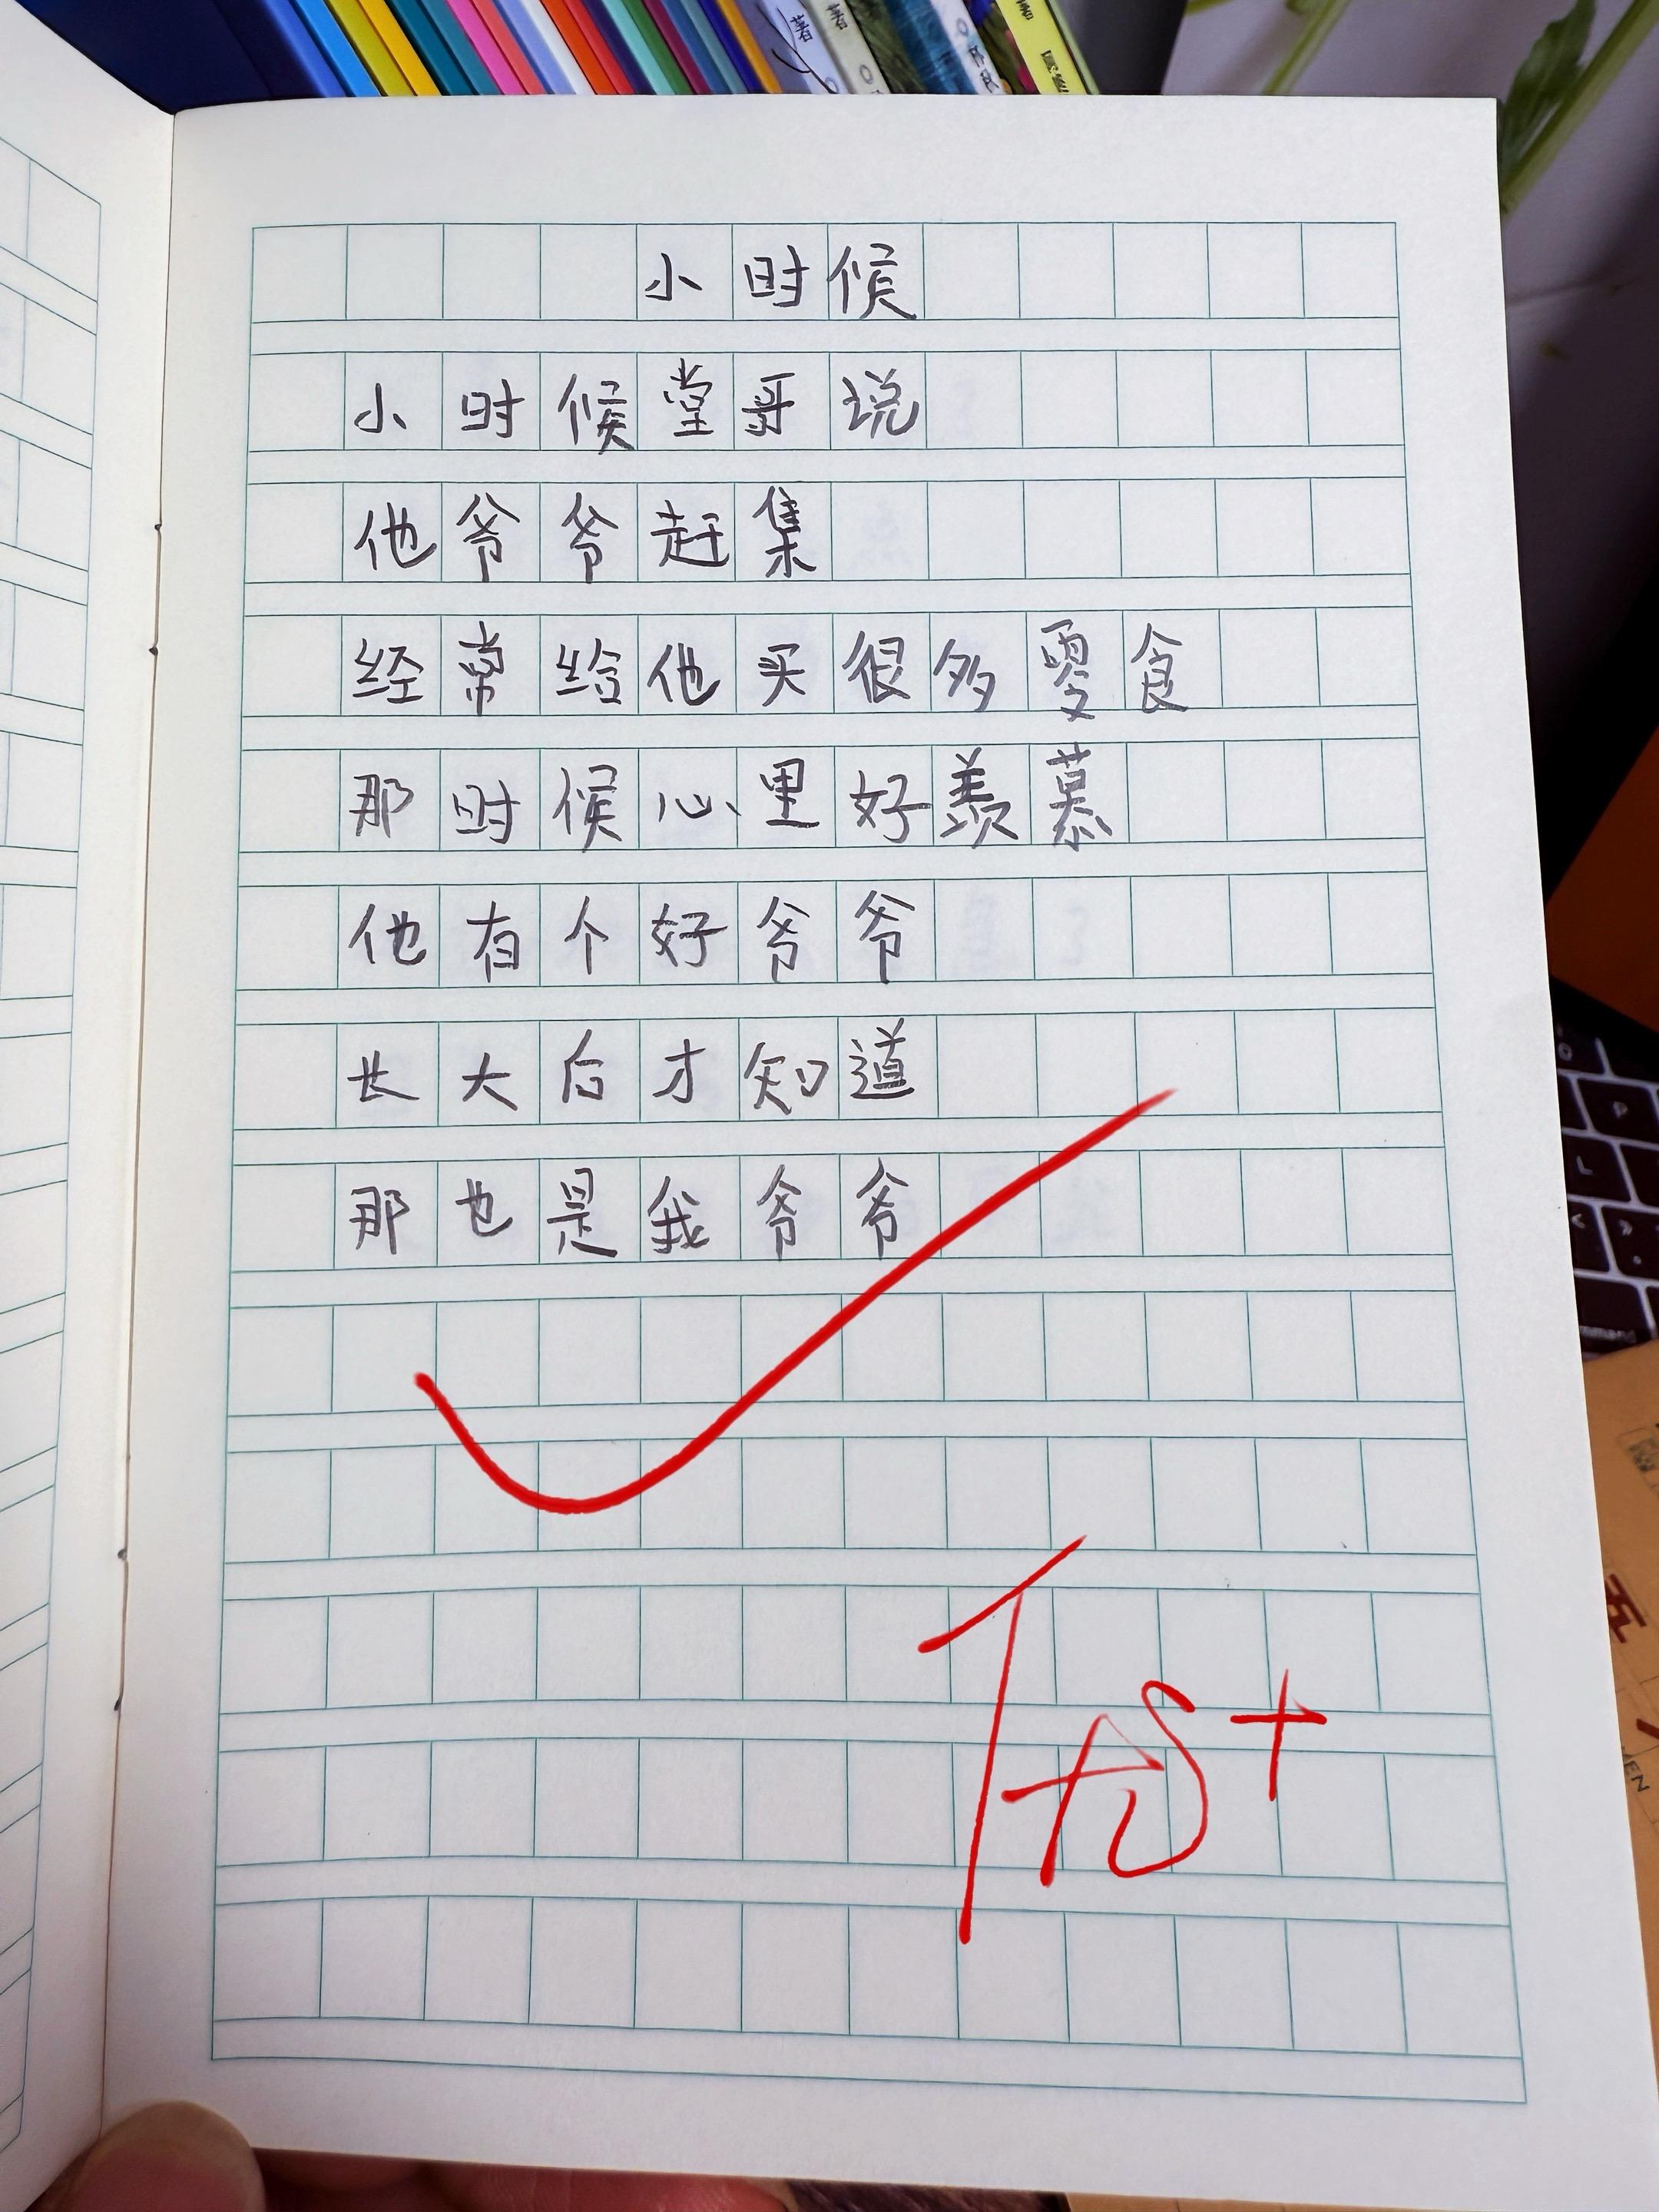 小时候
小时候堂哥说
他爷爷赶集
经常给他买很多零食
那时候心里好羡慕
他有个好爷爷
长大后才知道
那也是我爷爷
著
著